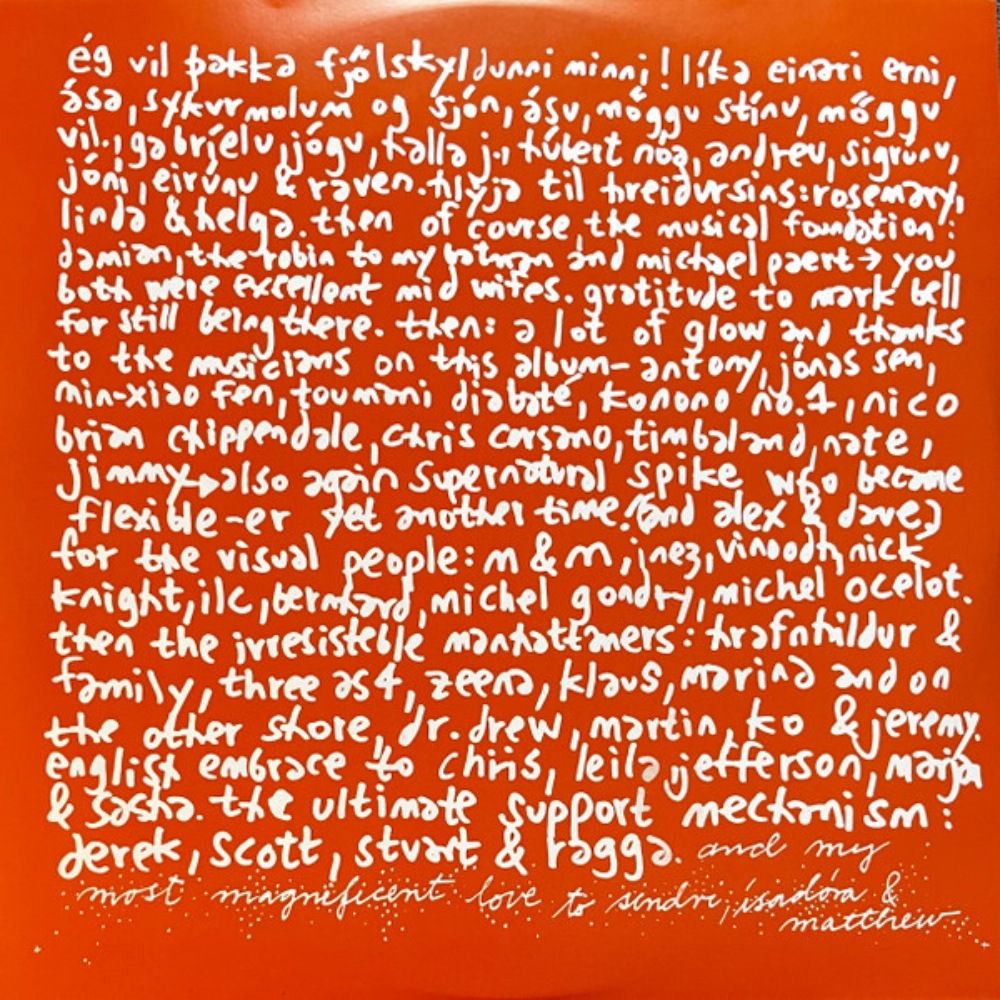 ég vil þakka fjölskyldunni minni! líka einari erni,
ása, sykurmolum og sjón, ásu, möggu stínu, möggu
vil., gabríelu, jógu, halla j., húbert nóa, andreu, sigrúnu,
jóni, eirúnu & raven. hlýja til hreidursins: rosemary,
linda & helga. then of course the musical foundation:
damian, the robin to my batman and michael paert → you
both were excellent mid wifes. gratitude to mark bell
for still being there. then: a lot of glow and thanks
to the musicians on this album- antony, jónas sen,
min-xiao fen, toumani diabaté, konono no.1, nico
brian chippendale, chris corsano, timbaland, nate,
jimmy→ also again supernatural spike who became
flexible-er yet another time. (and alex & dave)
for the visual people: m & m, inez, vinoodh, nick
knight, ilc, bernhard, michel gondry, michel ocelot.
then the irresisteble manhattaners: hrafnhildur &
family, three as 4, zeena, klaus, marina and on
the other shore, dr. drew, martin, ko & jeremy.
english embrace to chris, leila, jefferson, marjan
& sasha. the ultimate support mechanism:
derek, scott, stuart & ragga. and my
most magnificent love to sindri, ísadóra &
matthew